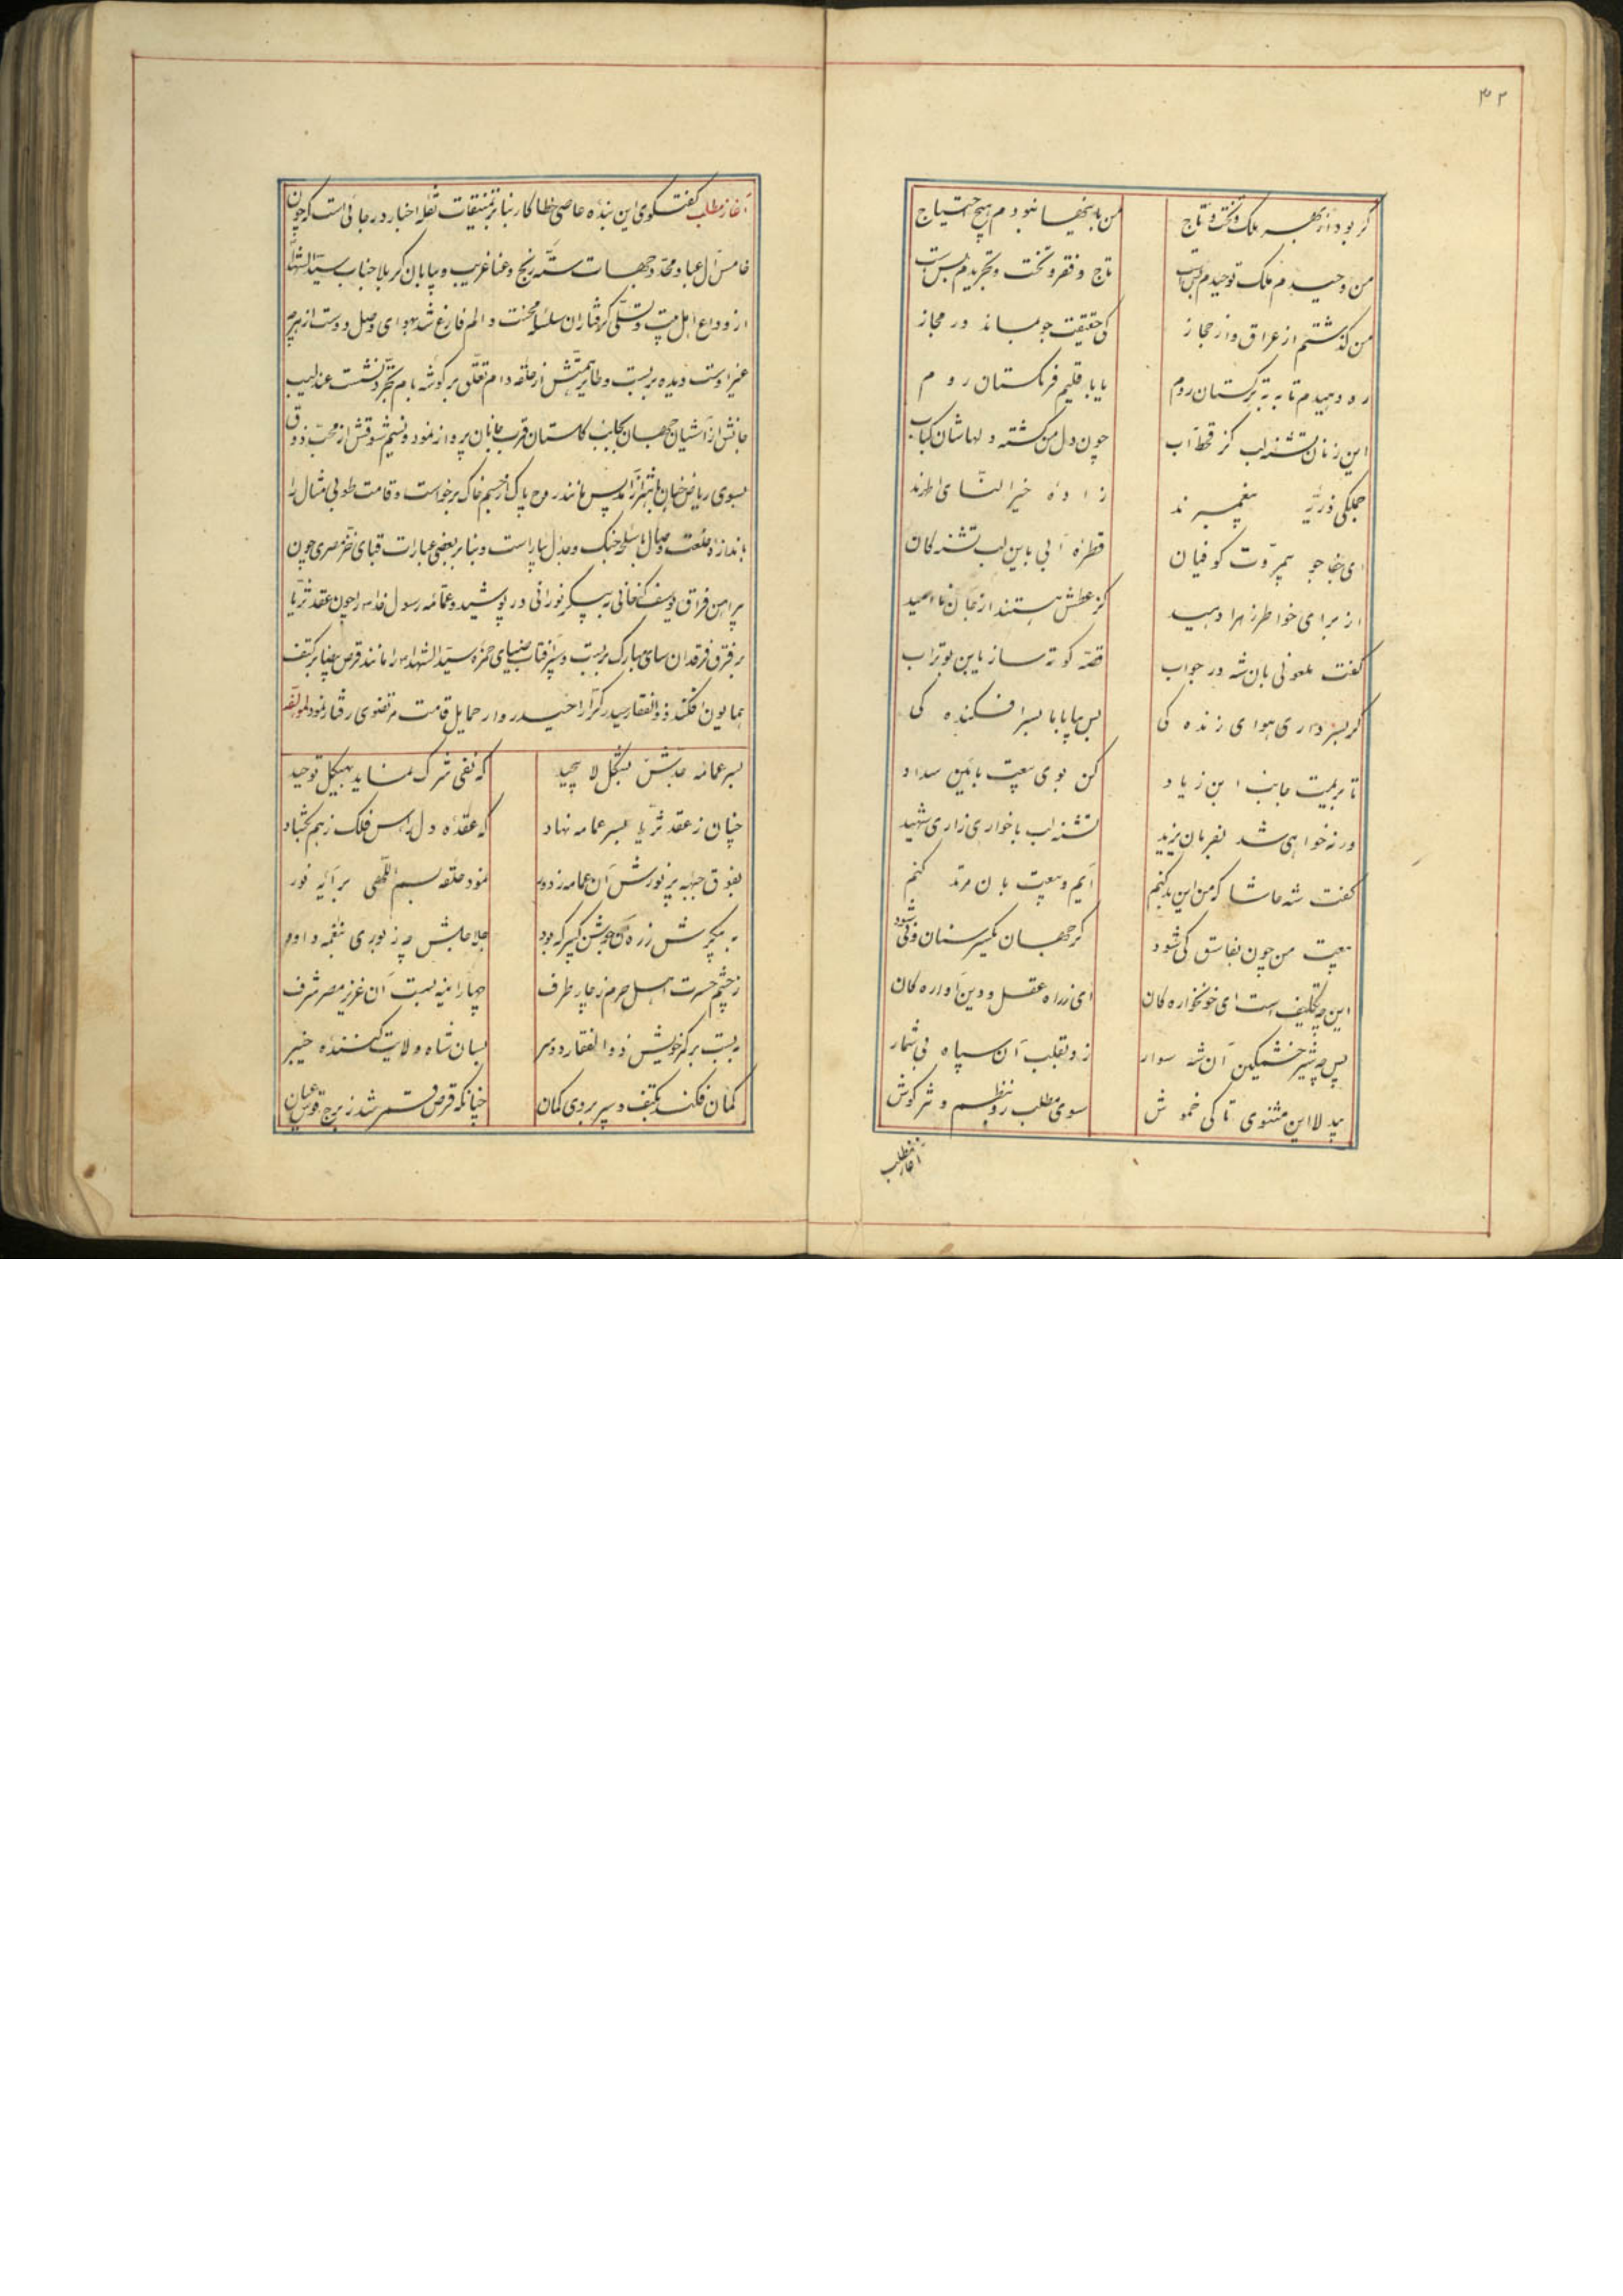 ۳۲
گر بود از بهر ملک و تخت و تاج من باینها نبودم هیچ احتیاج
من وحیدم ملک توحیدم بس است تاج و فقر و تخت و تجریدم بس است
من گذشتم از عراق و از حجاز کی حقیقت جو بماند در مجاز
ره دهیدم تا به ترکستان روم یا باقلیم فرنگستان روم
این زنان تشنه لب کز قحط آب چون دل من گشته دلهاشان کباب
جملگی ذریّهٔ پیغمبرند زادهٔ خیر النّسای اطهرند
ای جفا جو بیمروّت کوفیان قطرهٔ آبی باین لب تشنه کان
از برای خواطر زهرا دهید کز عطش هستند از جان ناامید
گفت ملعونی بان شه در جواب قصّه کوته ساز یابن بوتراب
گر بسر داری هوای زنده کی بس بیا با با سر افکنده کی
تا بریمت جانب ابن زیاد کن بوی بیعت بآئین سداد
ورنه خواهی شد بفرمان یزید تشنه لب با خواری زاری شهید
گفت شه حاشا که من این بد کنم آیم و بیعت بان مرتد کنم
بیعت من چون بفاسق کی شود گر جهان یکسر سنان و نی شود
این چه تکلیف است ای خونخواره کان ای ز راه عقل و دین آواره کان
پس چه شیر خشمگین آن شه سوار زد بقلب آن سپاه بی شمار
بیدلا این مثنوی تا کی خموش سوی مطلب رو بنظم و نثر کوش
آغاز مطلب
آغاز مطلب گفتگوی این بنده عاصی خطا کار بنا بر تنمیقات نقله اخبار در جائی است که چون
خامس آل عبا و محدّد جهات ستّه رنج و عنا غریب و بیابان کربلا جناب سیّد الشهدا
از وداع اهل بیت و تسلّی گرفتاران سلسله محنت و الم فارغ شد بهوای وصل دوست از هر چه
غیر اوست دیده بر بست و طایر همّتش از حلقه دام تعلّق بر گوشه بام تجرّد نشست عندلیب
جانش از آشیان جهان بجانب گلستان قرب جانان پرواز نمود و نسیم شوقش از محبّ ذوق
بسوی ریاض جنان باهتزاز آمد پس مانند روح پاک از جسم خاک برخواست و قامت طوبی مثال را
باندازه خلعت وصال باسلحه جنک و جدال بیاراست و بنا بر بعضی عبارات قبای خز مصری چون
پیراهن فراق یوسف کنعانی بر پیکر نورانی در پوشید و عمّامه رسول خدا را چون عقد ثریّا
بر فرق فرقدان سای مبارک بر بست و سپر آفتاب ضیای حمزه سیّد الشهدا را مانند قرص بیضا بر کتف
همایون افکند ذوالفقار حیدر کرّار را حیدر وار حمایل قامت مرتضوی رفتار نمود لمؤلّفه
بسر عمامه جدّش بشکل لا پیچید که نفی شرک نماید بهیکل توحید
چنان ز عقد ثریّا بسر عمامه نهاد که عقده دل راس فلک ز هم بگشاد
بفوق جبهه پر نورش آن عمامه ز دور نمود حلقه بسم اللّهی بر آیه نور
به پیکرش زره جوشن کبیر که بود جلاجلش چه زبوری بنغمه داود
ز چشم حسرت اهل حرم ز چار طرف چهار آینه بست آن عزیز مصر شرف
به بست بر کمر خویش ذوالفقار دو سر بسان شاه ولایت کننده خیبر
کمان فکند بکتف و سپر بروی کمان چنانکه قرص قمر شد ز برج قوس عیان